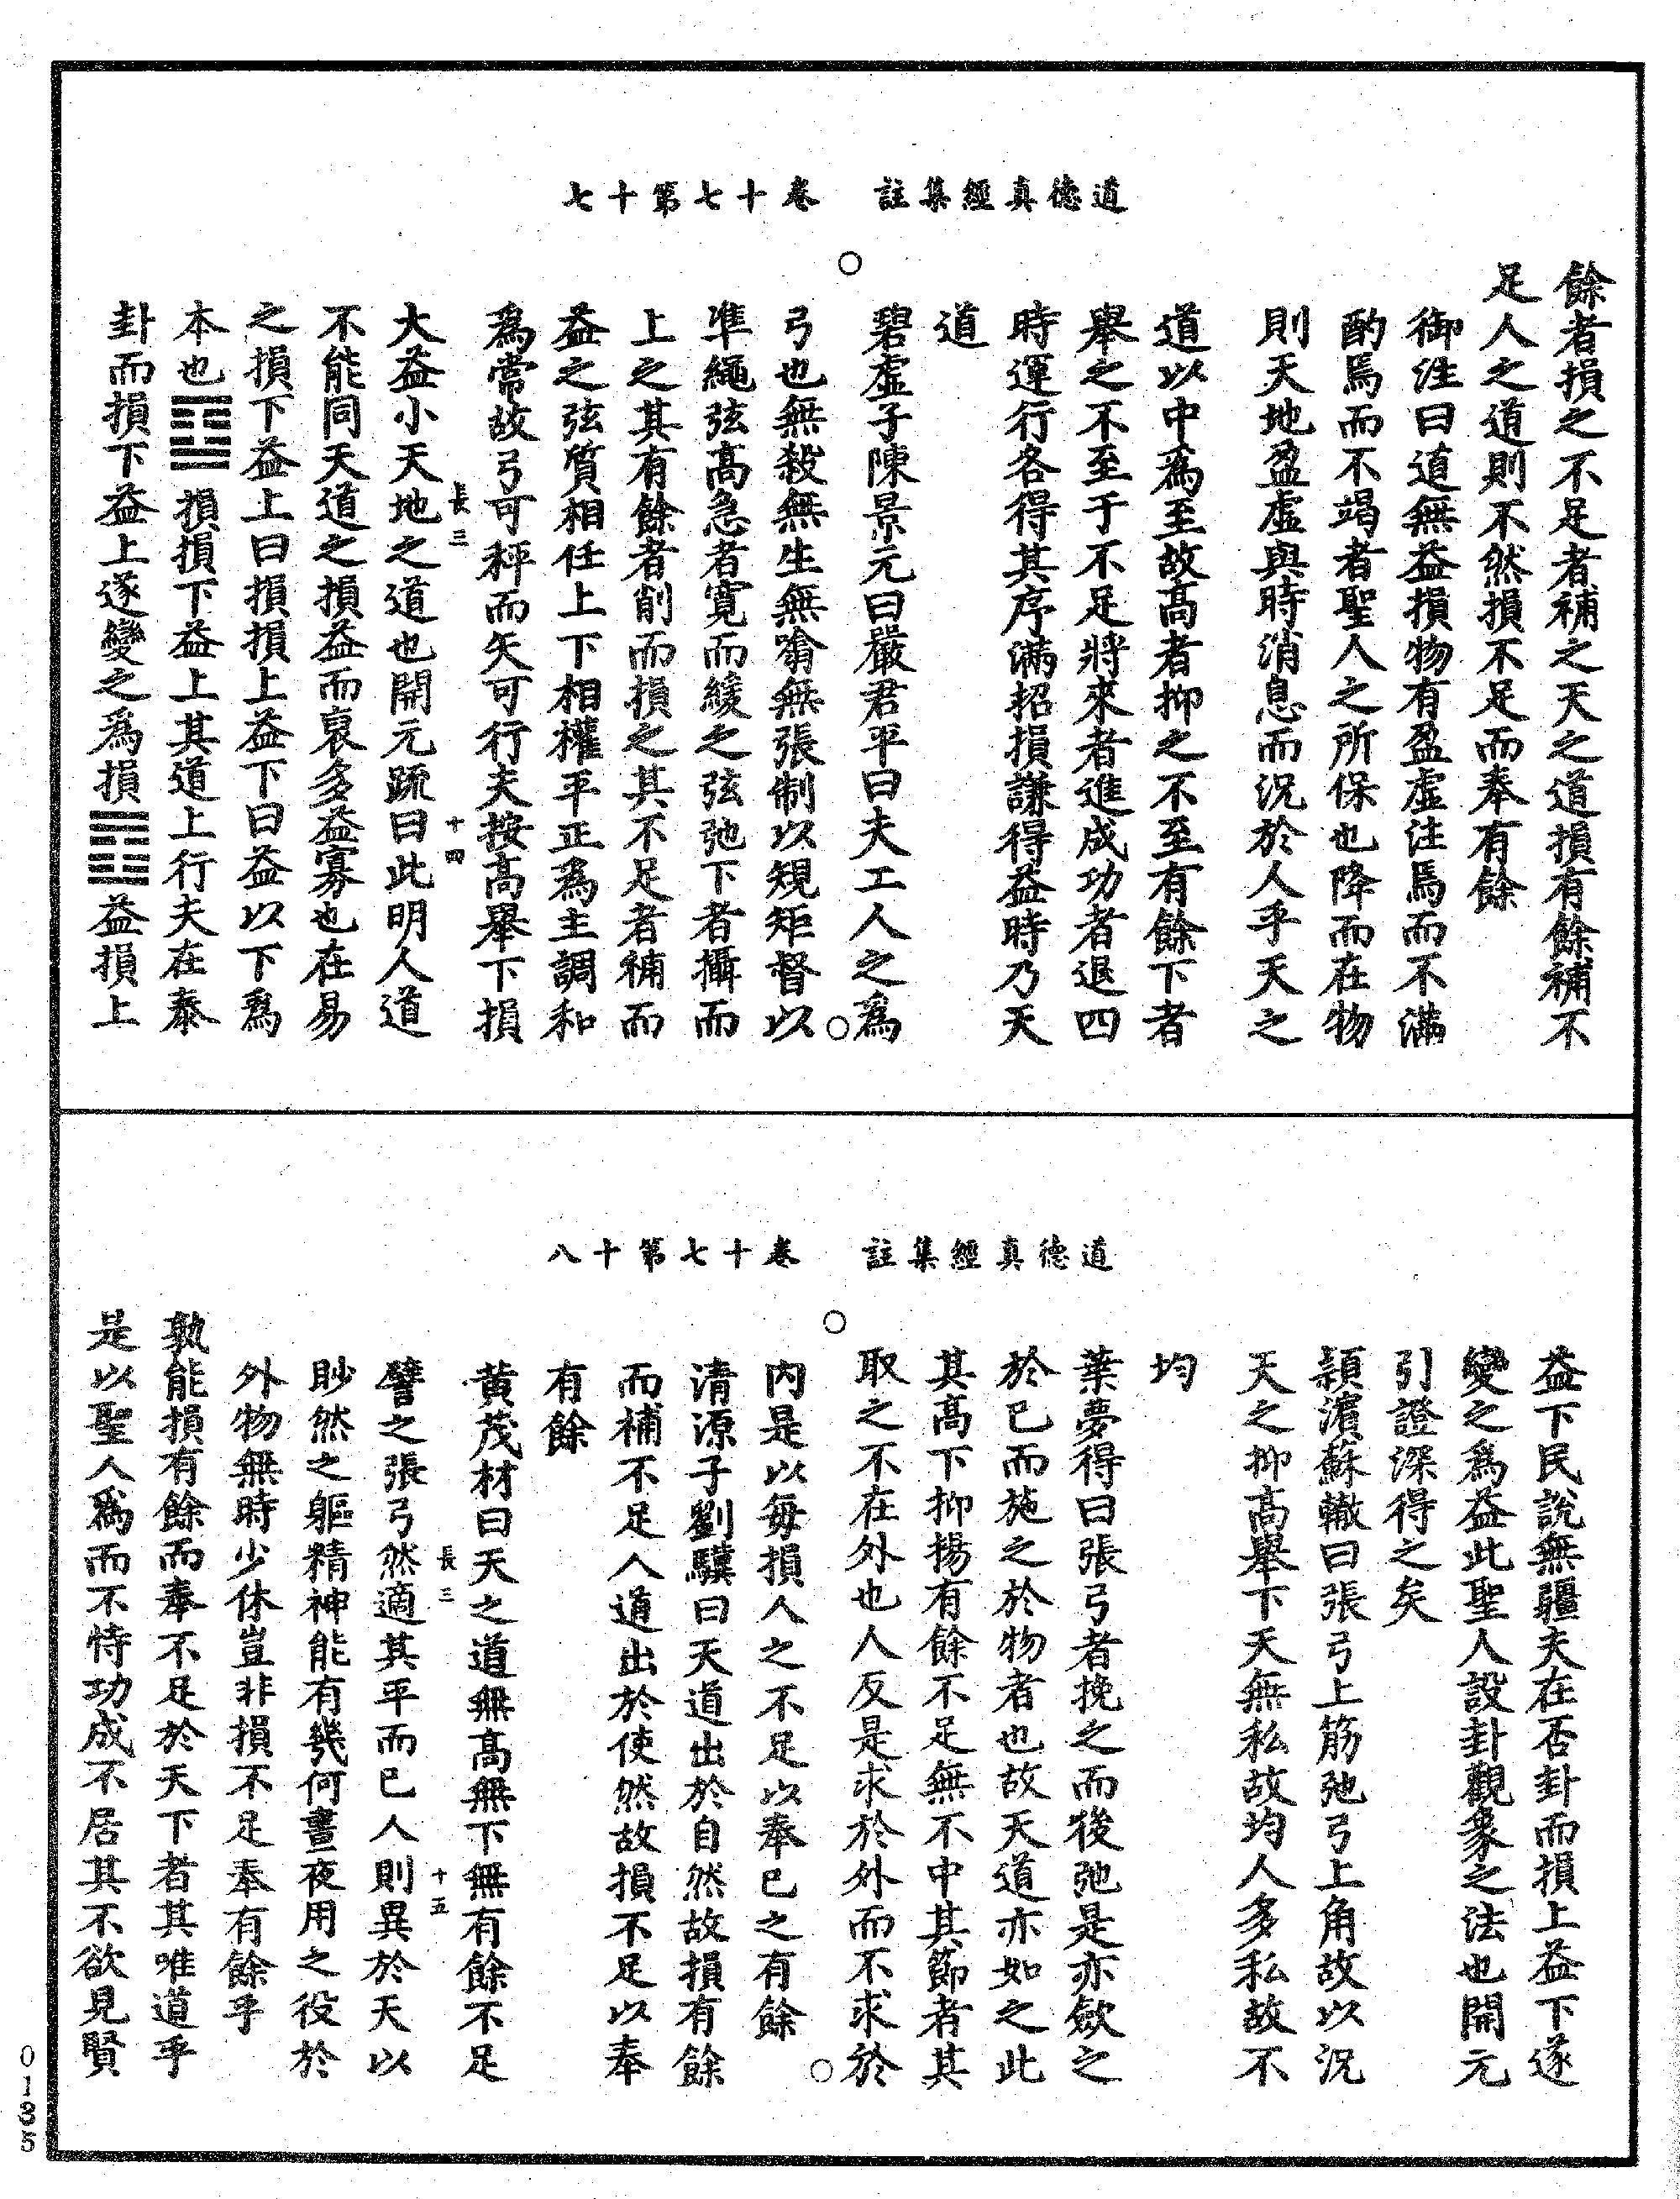 道德真經集註　卷十七第十七
餘者損之不足者補之天之道損有餘補不
足人之道則不然損不足而奉有餘
御注曰道無益損物有盈虛注焉而不滿
酌焉而不竭者聖人之所保也降而在物
則天地盈虛與時消息而況於人乎天之
道以中為至故高者抑之不至有餘下者
舉之不至于不足將來者進成功者退四
時運行各得其序滿招損謙得益時乃天
道
碧虛子陳景元曰嚴君平曰夫工人之為
弓也無殺無生無喻無張制以規矩督以
準繩弦高急者寬而緩之弦弛下者攝而
上之其有餘者削而損之其不足者補而
益之弦質相任上下相權平正為主調和
為常故弓可秤而矢可行夫按高舉下損
長三
十四
大益小天地之道也開元疏曰此明人道
不能同天道之損益而裒多益寡也在易
之損下益上曰損損上益下曰益以下為
本也䷨損損下益上其道上行夫在泰
卦而損下益上遂變之為損䷩益損上
道德真經集註　卷十七第十八
益下民說無疆夫在否卦而損上益下遂
變之為益此聖人設卦觀象之法也開元
引證深得之矣
頴濵蘇轍曰張弓上筋弛弓上角故以況
天之抑高舉下天無私故均人多私故不
均
葉夢得曰張弓者挽之而後弛是亦歛之
於已而施之於物者也故天道亦如之此
其高下抑揚有餘不足無不中其節者其
取之不在外也人反是求於外而不求於
內是以每損人之不足以奉已之有餘
清源子劉驥曰天道出於自然故損有餘
而補不足人道出於使然故損不足以奉
有餘
黃茂材曰天之道無高無下無有餘不足
長三
十五
譬之張弓然適其平而已人則異於天以
眇然之軀精神能有幾何晝夜用之役於
外物無時少休豈非損不足奉有餘乎
孰能損有餘而奉不足於天下者其唯道乎
是以聖人為而不恃功成不居其不欲見賢
0135